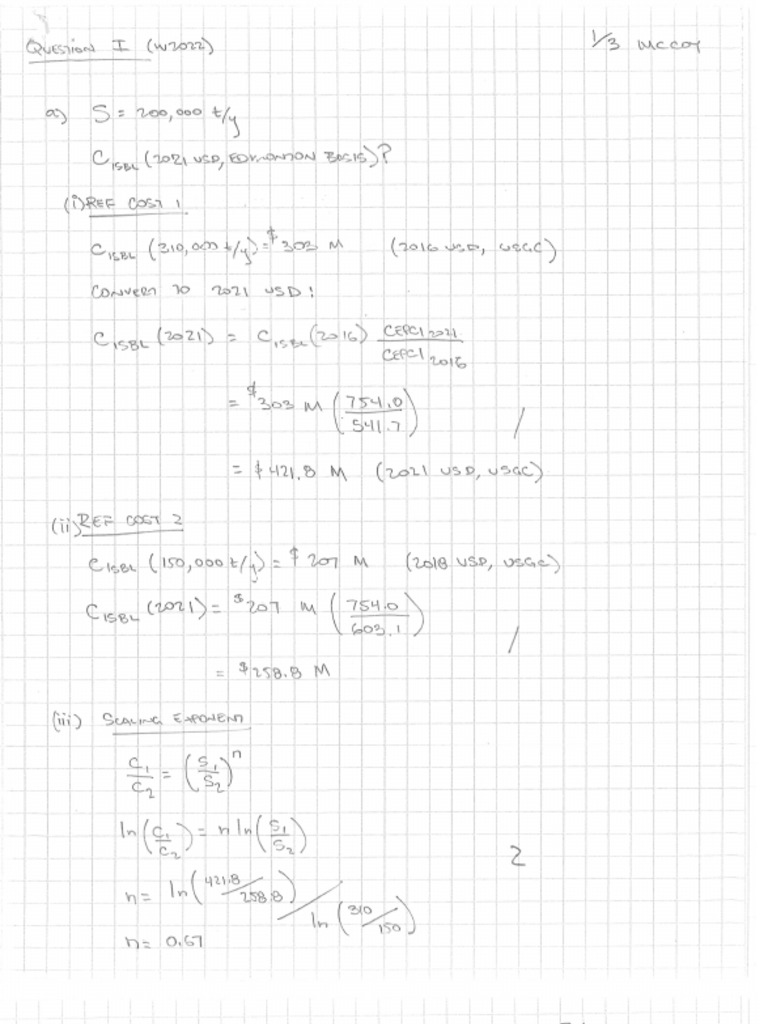 QUESTION I (W2022)
1/3 MCCOY
a) S = 200,000 t/y
C_ISBL (2021 USD, EDMONTON BASIS)?
(i) REF COST 1
C_ISBL (310,000 t/y) = $303 M (2016 USD, USGC)
CONVERT TO 2021 USD:
C_ISBL (2021) = C_ISBL (2016) CEPCI 2021 / CEPCI 2016
= $303 M (754.0 / 541.7) /
= $421.8 M (2021 USD, USGC)
(ii) REF COST 2
C_ISBL (150,000 t/y) = $207 M (2018 USD, USGC)
C_ISBL (2021) = $207 M (754.0 / 603.1) /
= $258.8 M
(iii) SCALING EXPONENT
C_1 / C_2 = (S_1 / S_2)^n
ln (C_1 / C_2) = n ln (S_1 / S_2)
2
n = ln (421.8 / 258.8) / ln (310 / 150)
n = 0.67